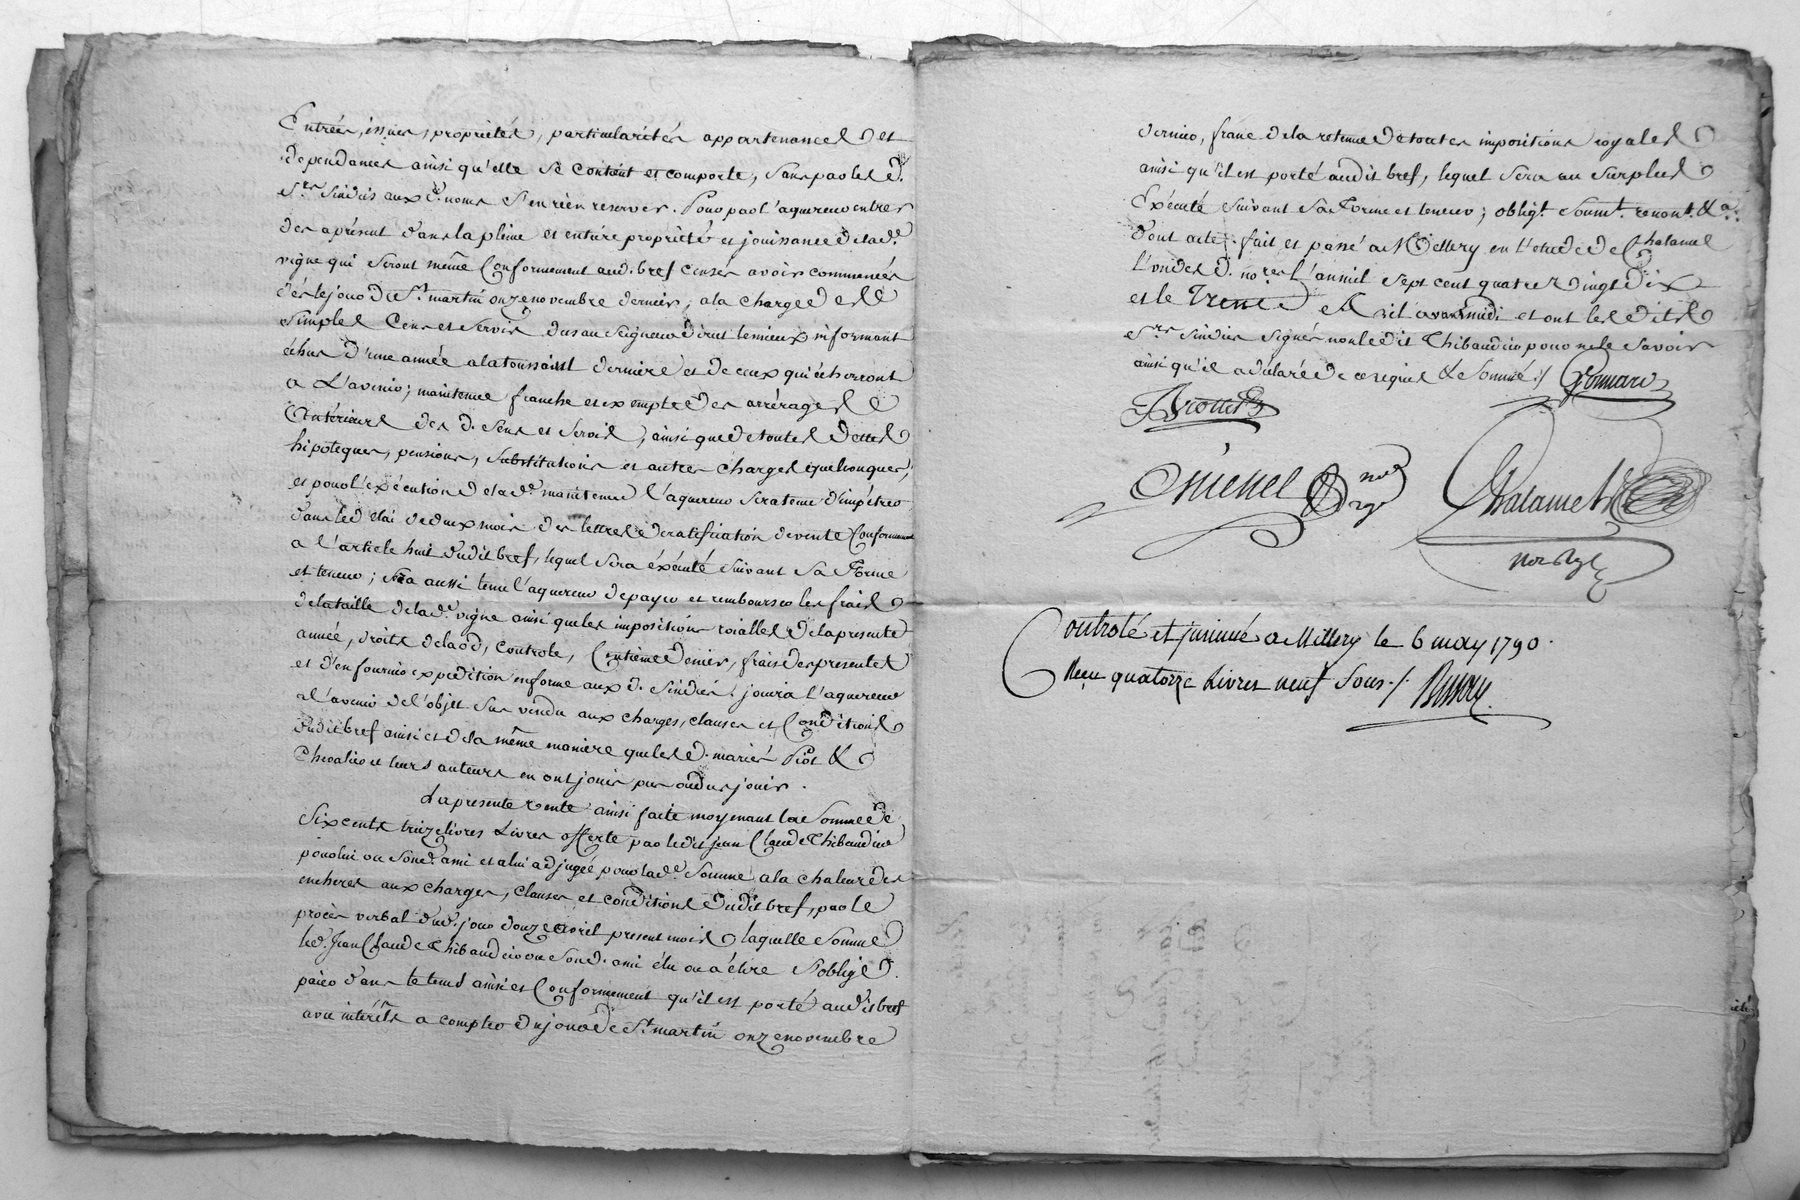 Entrées, issues, propriétés, particularités appartenances et
dependances ainsi qu'elle se contient et comporte, sans par les d.
Srs. sindics aux d. noms s'en rien reserver. Pour par l'aquereur entrer
des aprésent dans la pleine et entière propriété et jouissance de lad.
vigne qui seront même Conformement aud. bref censés avoir commencés
dès le jour de St. martin onze novembre dernier; a la charge des
simples Cens et servis dus au seigneur direct le mieux informant
échus d'une année a la toussaint dernière et de ceux qui écherront
a L'avenir; maintenue franche et exempte des arrérages
antérieurs des d. Sens et servis, ainsi que de toutes dettes
hipoteques, pensions, substitutions et autres charges quelconques,
et pour l'exécution de la de. maintenue l'aquereur sera tenu d'impétrer
dans le délai de deux mois des lettres de ratification de vente Conformement
a l'article huit dudit bref, lequel sera éxécuté suivant sa forme
et teneur; sera aussi tenu l'aquereur de payer et rembourser les frais
de la taille de lad. vigne ainsi que les impositions roialles de la presente
année, droits de laod, controle, Centième denier, frais des presentes
et d'en fournir expedition en forme aux d. sindics; jouira l'aquereur
a l'avenir de l'objet sus vendu aux charges, clauses et Conditions
dudit bref ainsi et de la même manière que les d. mariés Piot &
Chevalier et leurs auteurs en ont jouis pu ou du jouir.
La presente vente ainsi faite moyenant la somme de
Six cents treize livres Livres offerte par ledit jean Claude Thibaudier
pour lui ou son d. ami et a lui adjugée pour lad. somme a la chaleur des
encheres aux charges, clauses et conditions dudit bref, par le
procès verbal dud. jour douze avril present mois laquelle somme
led. Jean Claude Thibaudier ou son d. ami élu ou a élire s'oblige
païer dans le tems ainsi et Conformement qu'il est porté audit bref
avec intérêts a compter du jour de St. martin onze novembre
dernier, franc de la retenue de toutes impositions royales
ainsi qu'il est porté audit bref, lequel sera au surplus
Exécuté suivant sa forme et teneur; obligt. soumt. renont. &a.
dont acte. fait et passé a Millery en l'etude de Chalamel
l'un des d. nores. L'an mil sept cent quatre vingt dix
et le Trente Avril avant midi et ont lesdits
Srs. sindics signés non ledit Thibaudier pour ne le savoir
ainsi qu'il a déclaré de ce requis & sommé ./. Gonnard
Chalamel
nore. Rl.
Controlé et insinué a Millery le 6 may 1790.
Reçu quatorze Livres neuf sous ./.